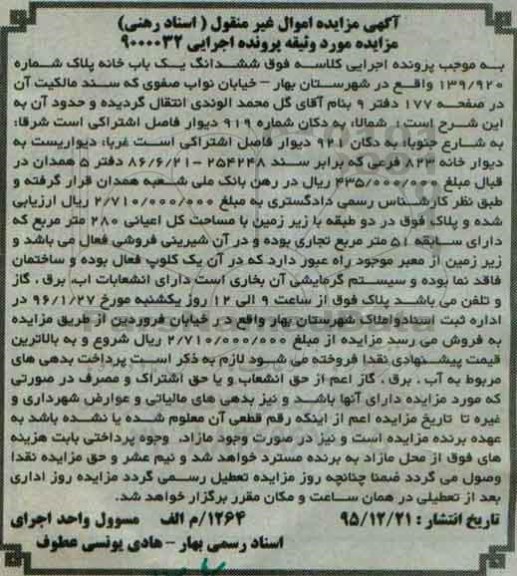 آگهی مزایده اموال غیر منقول ( اسناد رهنی)
مزایده مورد وثیقه پرونده اجرایی ۹۰۰۰۰۳۲
به موجب پرونده اجرایی کلاسه فوق ششدانگ یک باب خانه پلاک شماره
۱۳۹/۹۲۰ واقع در شهرستان بهار - خیابان نواب صفوی که سند مالکیت آن
در صفحه ۱۷۷ دفتر ۹ بنام آقای گل محمد الوندی انتقال گردیده و حدود آن به
این شرح است : شمالا، به دکان شماره ۹۱۹ دیوار فاصل اشتراکی است شرقا:
به شارع جنوبا، به دکان ۹۲۱ دیوار فاصل اشتراکی است غربا، دیواریست به
دیوار خانه ۸۲۳ فرعی که برابر سند ۲۵۴۲۴۸ - ۸۶/۶/۲۱ دفتر ۵ همدان در
قبال مبلغ ۴۳۵/۰۰۰/۰۰۰ ریال در رهن بانک ملی شعبه همدان قرار گرفته و
طبق نظر کارشناس رسمی دادگستری به مبلغ ۲/۷۱۰/۰۰۰/۰۰۰ ریال ارزیابی
شده و پلاک فوق در دو طبقه با زیر زمین با مساحت کل اعیانی ۲۸۰ متر مربع که
دارای سابقه ۵۱ متر مربع تجاری بوده و در آن شیرینی فروشی فعال می باشد و
زیر زمین از معبر موجود راه عبور دارد که در آن یک کلوپ فعال بوده و ساختمان
فاقد نما بوده و سیستم گرمایشی آن بخاری است دارای انشعابات اب، برق ، گاز
و تلفن می باشد پلاک فوق از ساعت ۹ الی ۱۲ روز یکشنبه مورخ ۹۶/۱/۲۷ در
اداره ثبت اسناد و املاک شهرستان بهار واقع در ، خیابان فروردین از طریق مزایده
به فروش می رسد مزایده از مبلغ ۲/۷۱۰/۰۰۰/۰۰۰ ریال شروع و به بالاترین
قیمت پیشنهادی نقدا فروخته می شود لازم به ذکر است پرداخت بدهی های
مربوط به آب ، برق ، گاز اعم از حق انشعاب و یا حق اشتراک و مصرف در صورتی
که مورد مزایده دارای آنها باشد و نیز بدهی های مالیاتی و عوارض شهرداری و
غیره تا تاریخ مزایده اعم از اینکه رقم قطعی آن معلوم شده یا نشده باشد به
عهده برنده مزایده است و نیز در صورت وجود مازاد، وجوه پرداختی بابت هزینه
های فوق از محل مازاد به برنده مسترد خواهد شد و نیم عشر و حق مزایده نقدا
وصول می گردد ضمنا چنانچه روز مزایده تعطیل رسمی گردد مزایده روز اداری
بعد از تعطیلی در همان ساعت و مکان مقرر برگزار خواهد شد.
تاریخ انتشار : ۹۵/۱۲/۲۱ ۱۲۶۴/م الف مسوول واحد اجرای
اسناد رسمی بهار - هادی یونسی عطوف